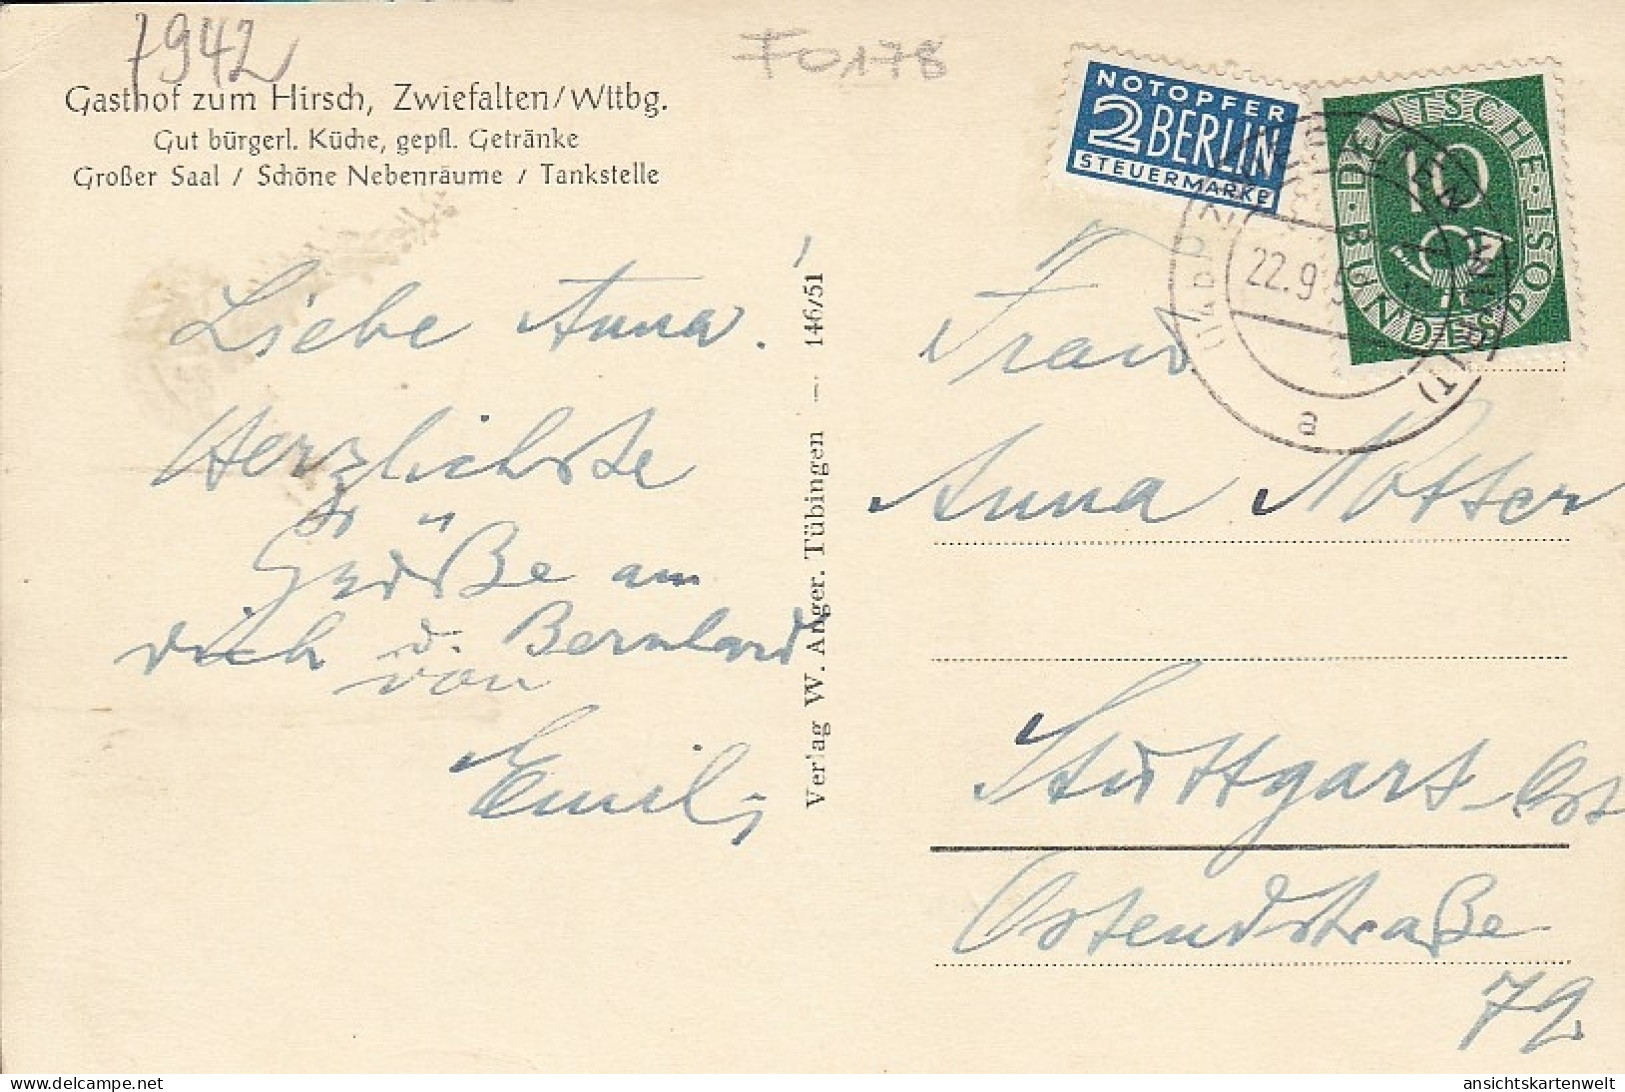 7942
F0178
Gasthof zum Hirsch, Zwiefalten/Wttbg.
Gut bürgerl. Küche, gepfl. Getränke
Großer Saal / Schöne Nebenräume / Tankstelle
Liebe Anna!
Herzlichste
Grüße am
dich u. Bernhard
von
Emil
Verlag W. Anger. Tübingen — 146/51
NOTOPFER
2 BERLIN
STEUERMARKE
DEUTSCHE BUNDESPOST
10
22.9.5
a
Frau
Anna Notter
Stuttgart-Ost
Ostendstraße
72
ansichtskartenwelt